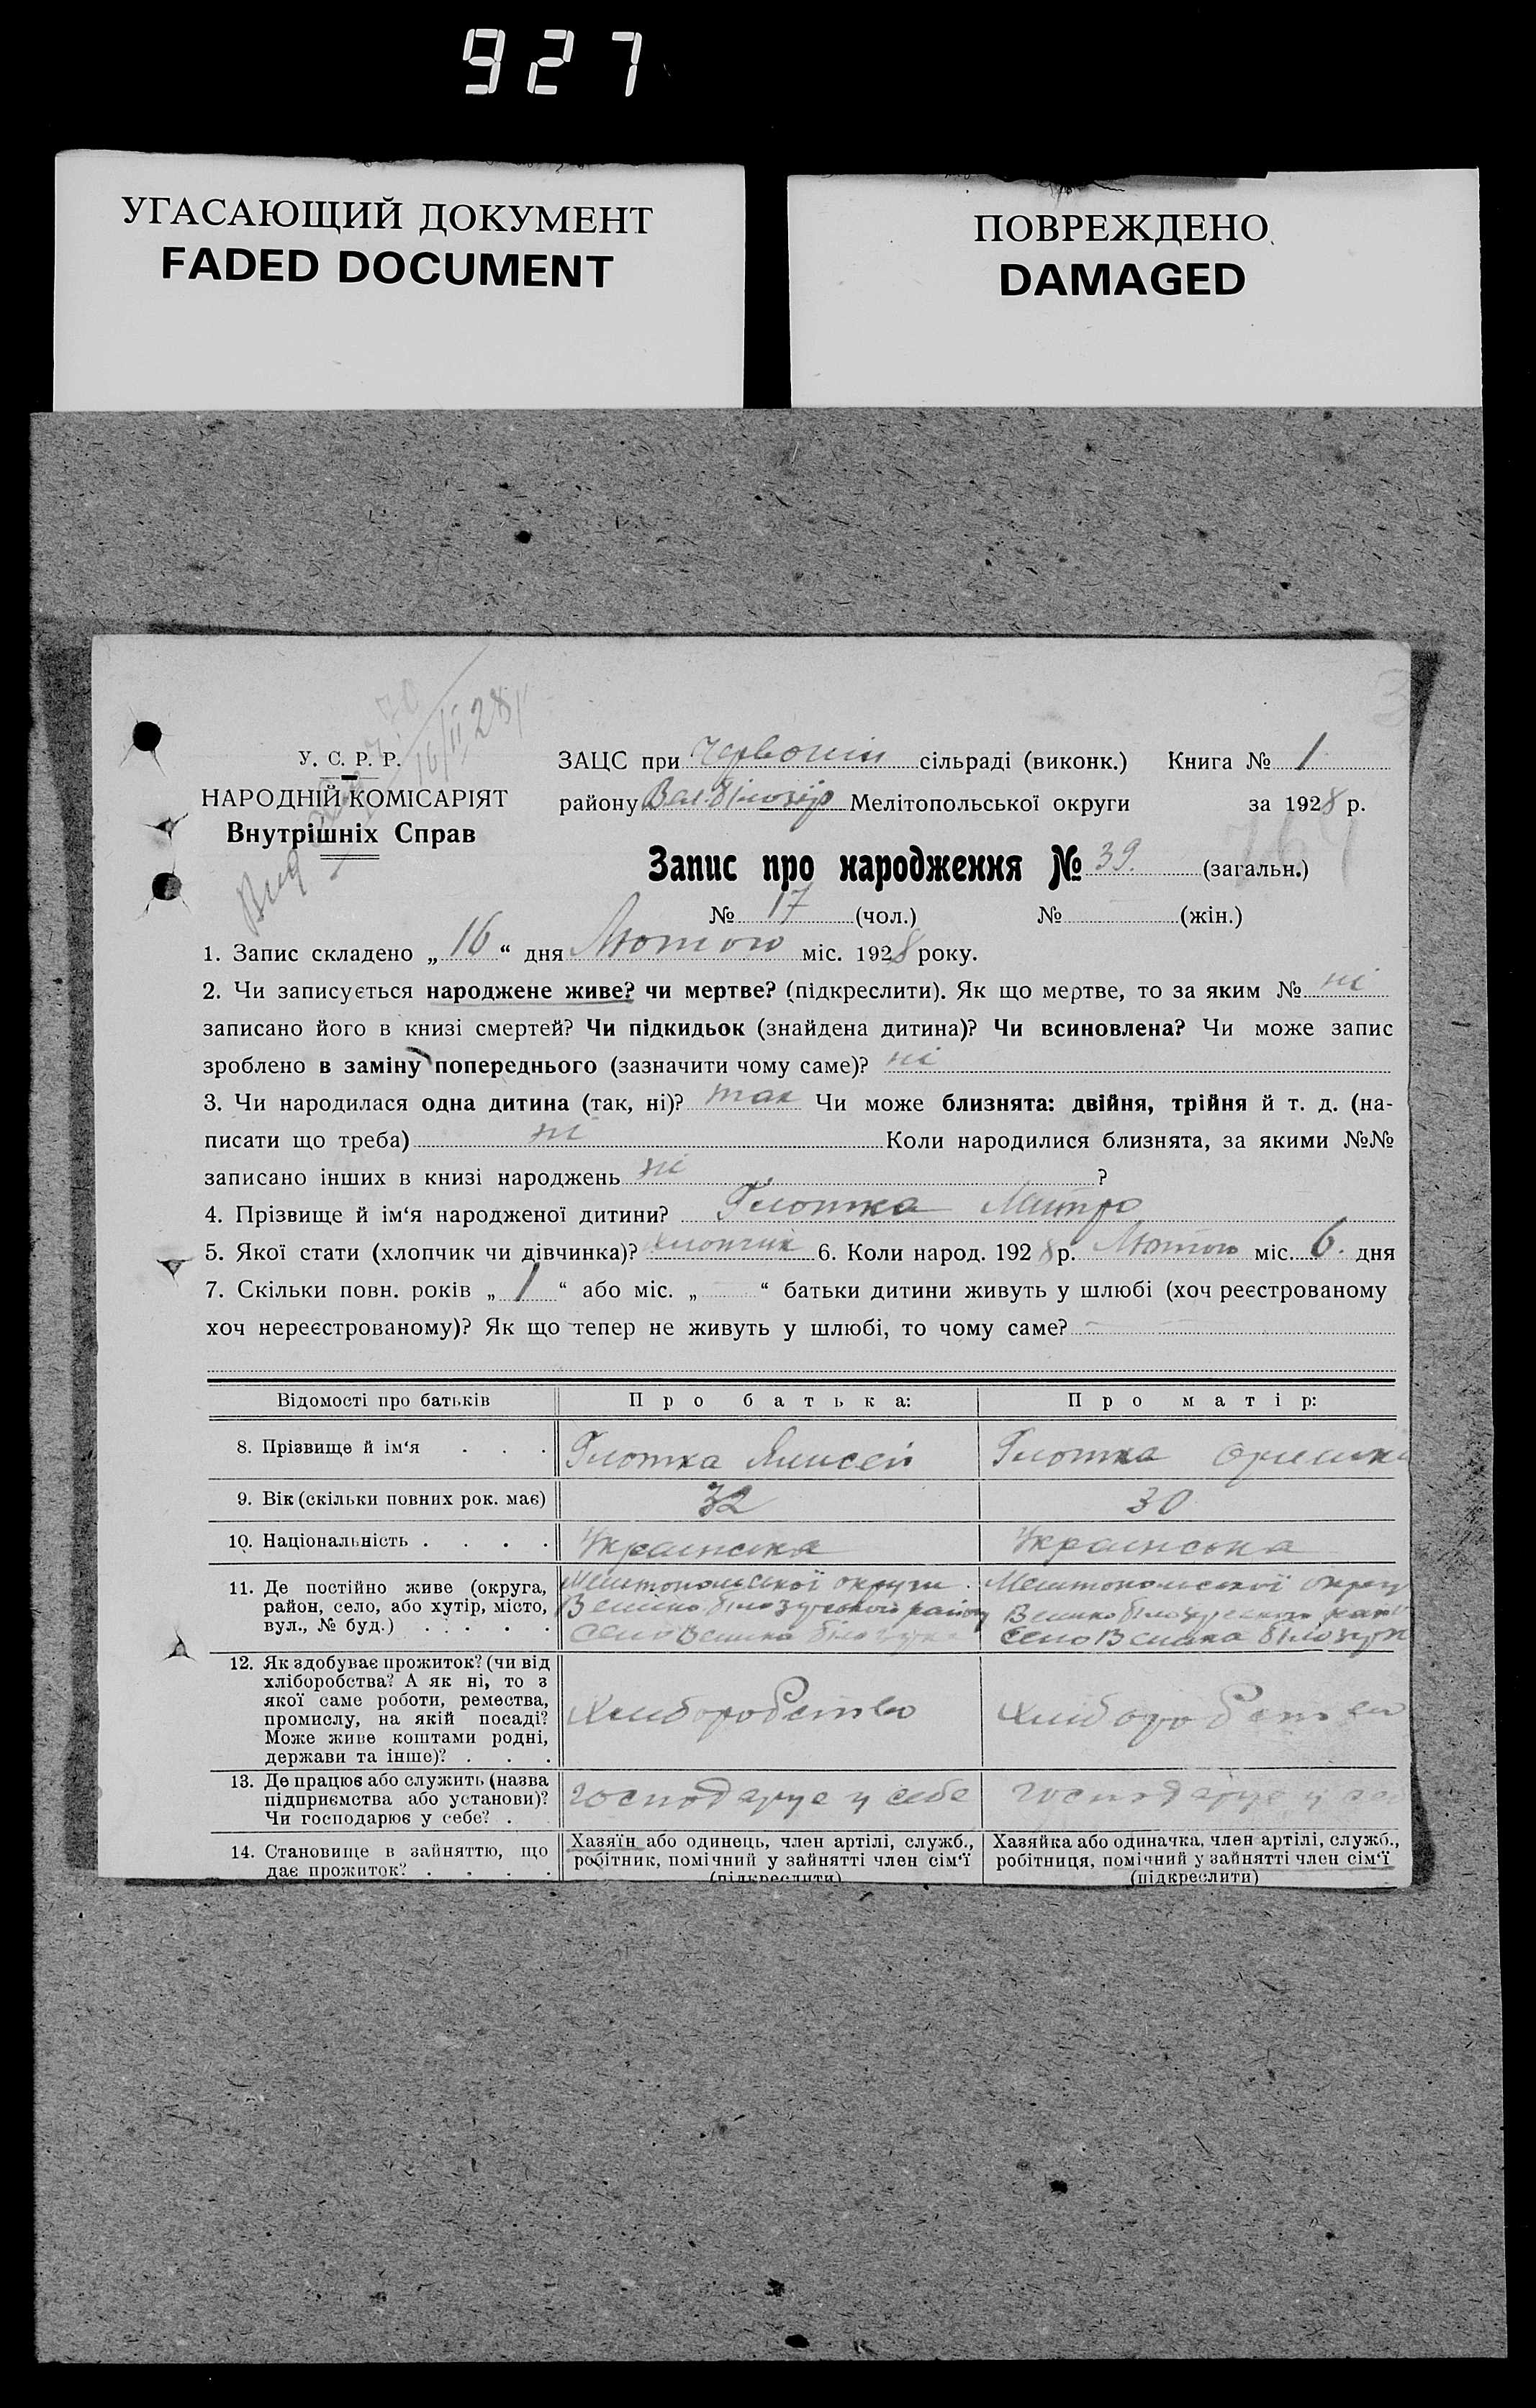 927
УГАСАЮЩИЙ ДОКУМЕНТ
FADED DOCUMENT
ПОВРЕЖДЕНО
DAMAGED
16/II 28
У. С. Р. Р.
НАРОДНІЙ КОМІСАРІЯТ
Внутрішніх Справ
ЗАЦС при Червонін сільраді (виконк.) Книга № 1
району Вел-Білозір Мелітопольської округи за 1928 р.
764
Запис про народження № 39. (загальн.)
№ 17 (чол.) № (жін.)
1. Запис складено „ 16 “ дня Лютого міс. 1928 року.
2. Чи записується народжене живе? чи мертве? (підкреслити). Як що мертве, то за яким № ні
записано його в книзі смертей? Чи підкидьок (знайдена дитина)? Чи всиновлена? Чи може запис
зроблено в заміну попереднього (зазначити чому саме)? ні
3. Чи народилася одна дитина (так, ні)? так Чи може близнята: двійня, трійня й т. д. (на-
писати що треба) ні Коли народилися близнята, за якими №№
записано інших в книзі народжень ні ?
4. Прізвище й ім‘я народженої дитини? Глотка Митро
5. Якої стати (хлопчик чи дівчинка)? хлопчик 6. Коли народ. 1928 р. Лютого міс. 6. дня
7. Скільки повн. років „ 1 “ або міс. „ “ батьки дитини живуть у шлюбі (хоч реєстрованому
хоч нереєстрованому)? Як що тепер не живуть у шлюбі, то чому саме?
Відомості про батьків Про батька: Про матір:
8. Прізвище й ім‘я . . . Глотка Глотка
9. Вік (скільки повних рок. має) 32 30
10. Національність . . . . Українська Українська
11. Де постійно живе (округа, район, село, або хутір, місто, вул., № буд.) . . . . .
Мелітопольської округи
Велико білозірського району
село Велика білозірка
Мелітопольської округ
Велико білозірського рай
село Велика білозірк
12. Як здобуває прожиток? (чи від
хліборобства? А як ні, то з
якої саме роботи, ремества,
промислу, на якій посаді?
Може живе коштами родні,
держави та інше)? . . .
Хліборобство Хліборобство
13. Де працює або служить (назва
підприємства або установи)?
Чи господарює у себе? .
господарує у себе господарує у себ
14. Становище в зайняттю, що
дає прожиток? . . . .
Хазяїн або одинець, член артілі, служб.,
робітник, помічний у зайнятті член сім‘ї
(підкреслити)
Хазяйка або одиначка, член артілі, служб.,
робітниця, помічний у зайнятті член сім‘ї
(підкреслити)